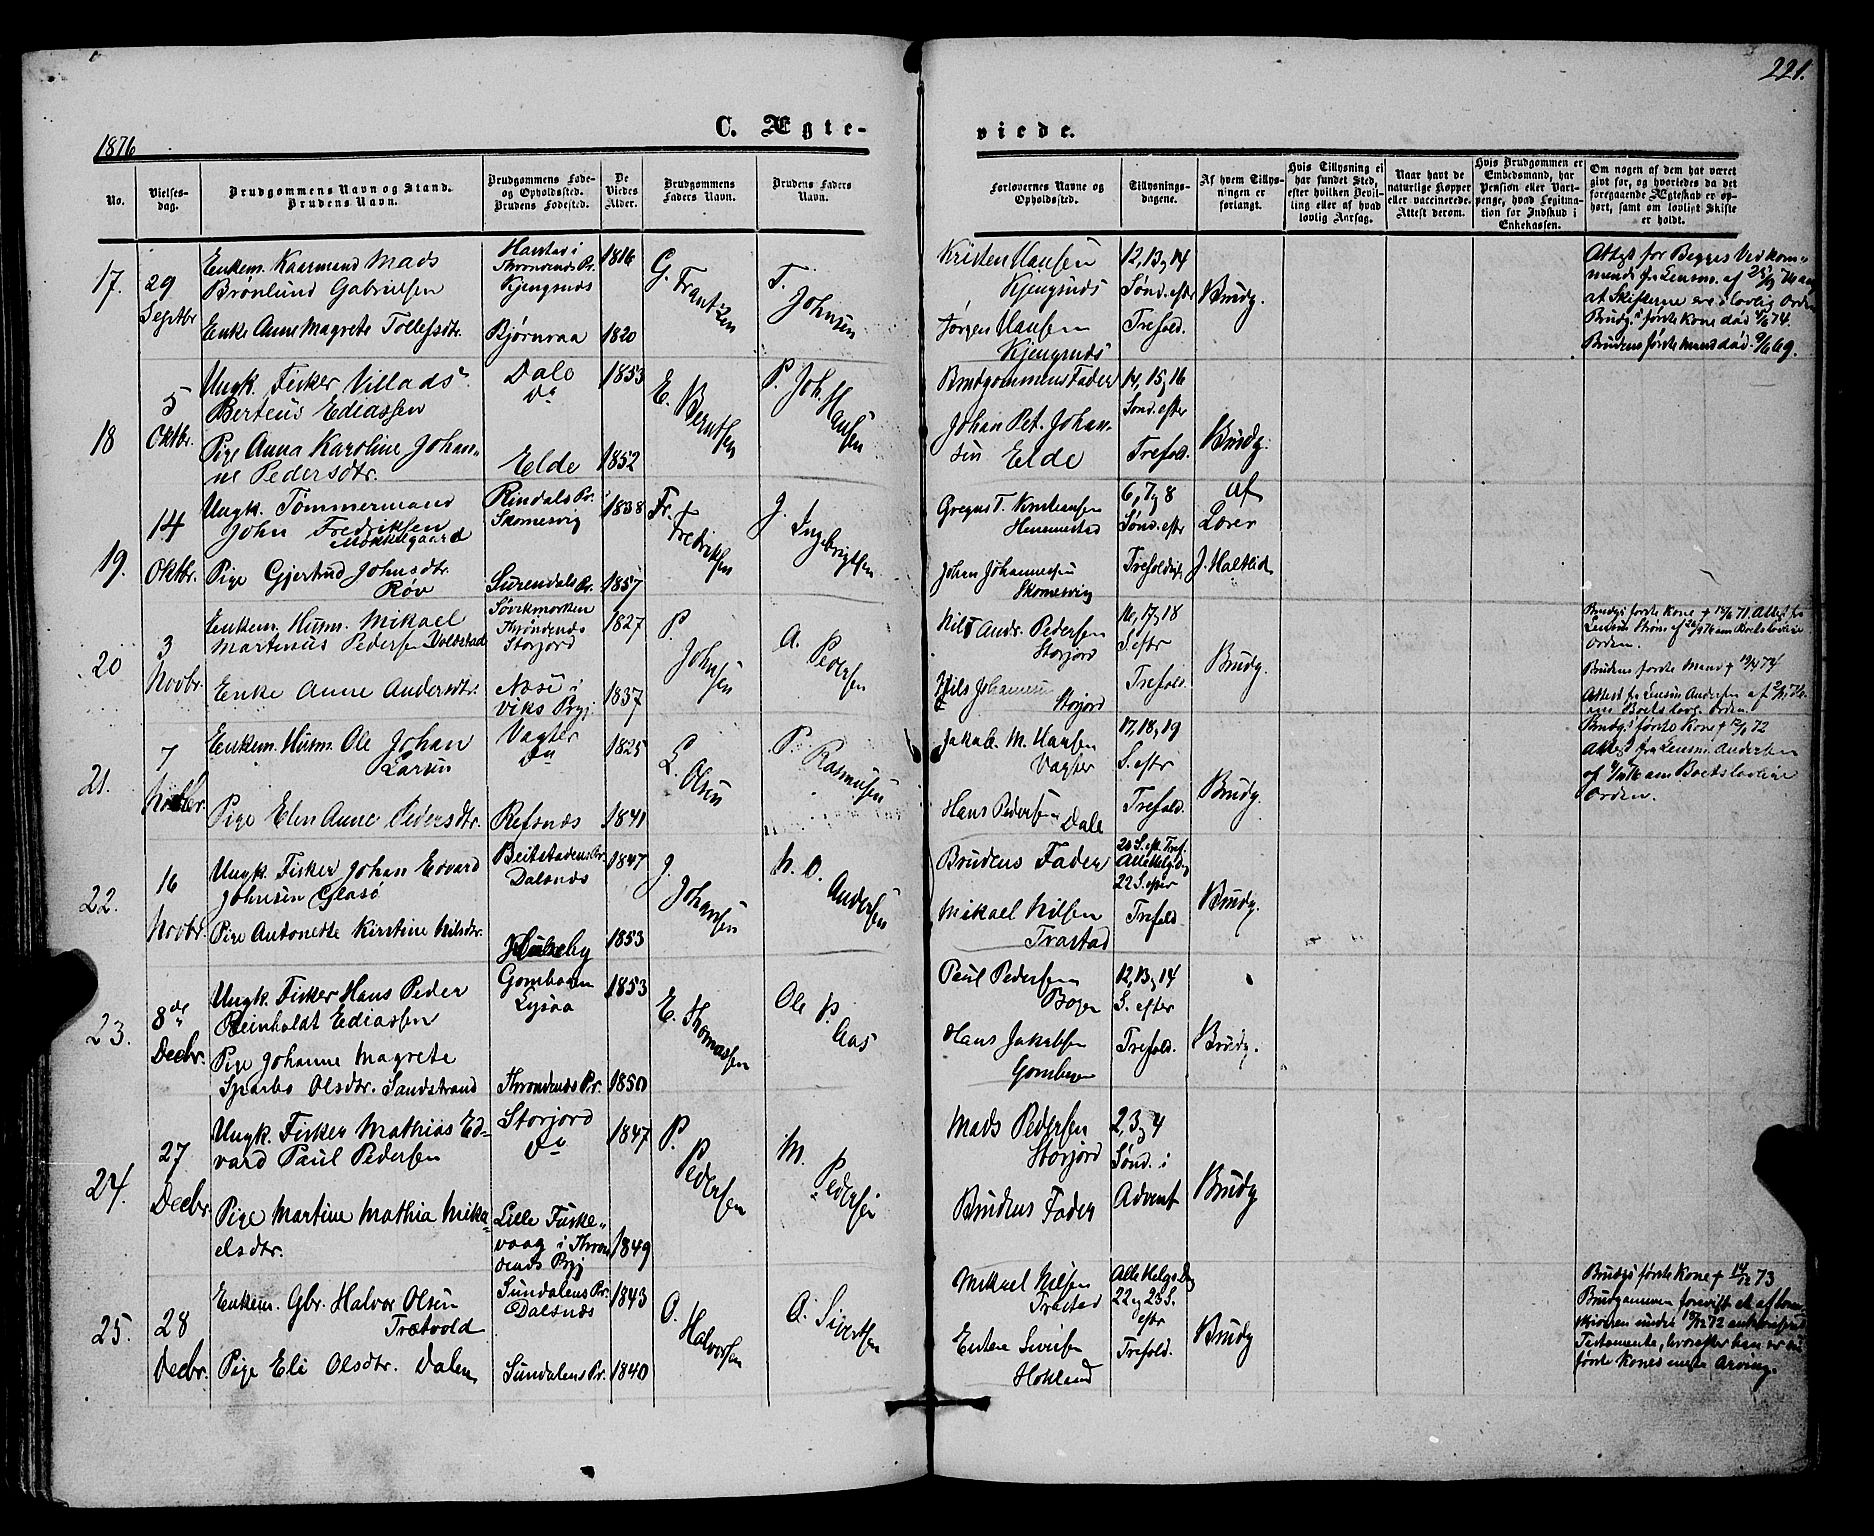 1876
C. Ægte-
viede.
221.
No.
Vielses-
dag.
Brudgommens Navn og Stand.
Brudens Navn.
Brudgommens Føde-
og Opholdssted.
Brudens Fødested.
De
Viedes
Alder.
Brudgommens
Faders Navn.
Brudens Faders
Navn.
Forlovernes Navne og
Opholdssted.
Tillysnings-
dagene.
Af hvem Tillys-
ningen er
forlangt.
Hvis Tillysning ei
har fundet Sted,
efter hvilken Bevil-
ling eller af hvad
lovlig Aarsag.
Naar havt de
naturlige Kopper
eller vaccinerede.
Attest derom.
Hvis Brudgommen er
Embedsmand, har
Pension eller Vart-
penge, hvad Legitima-
tion for Indskud i
Enkekassen.
Om nogen af dem har været
givt før, og hvorledes da det
foregaaende Ægteskab er op-
hørt, samt om lovligt Skifte
er holdt.
17.
29
Septbr
Enkem. Kaarmand Mads
Brønlund Gabrielsen
Enke Anne Magrete Tollefsdtr.
Harstad i
Throndenæs Pr.
Kjengsnæs
Bjørnraa
1816
1820
G. Frantzen
T. Johnsen
Kristen Hansen
Kjengsnæs
Jørgen Hansen
Kjengsnæs
12, 13 og 14
Sønd. efter
Trefold.
Brudg.
Attest for Begges Vedkom-
mende fra Lensm. af
at Skifterne ere i lovlig Orden
Brudg.s første Kone død
Brudens første Mand død 9/6 69.
18
5
Oktbr.
Ungk. Fisker Villads
Berteus Ediassen
Pige Anna Karoline Johan-
ne Pedersdtr.
Dale
do
Elde
1853
1852
E. Berntsen
P. Joh. Hansen
Brudgommens Fader
Johan Pet. Johan-
sen Elde
14, 15 og 16
Sønd. efter
Trefold.
Brudg.
19.
14
Oktbr.
Ungk. Tømmermand
John Fredriksen
Mokkelgaard
Pige Gjertrud Johnsdtr.
Røv
Rindals Pr.
Skomesvig
Surendals Pr.
1838
1857
Fr. Fredriksen
J. Ingebrigtsen
Gregus T. Kristiansen
Hemmestad
Johan Johannessen
Skomesvig
6, 7 og 8
Sønd. efter
Trefoldigh.
af
Lærer
J. Haltlid
20
3
Novbr.
Enkem. Husm. Mikael
Martinus Pedersen Voldstad
Enke Anne Andersdtr.
Søvikmarken
Throndenæs
Storjord
Næse i
viks Prgj.
1827
1837
P. Johnsen
A. Pedersen
Nils Andr. Pedersen
Storjord
Nils Johannesen
Storjord
16, 17 og 18
S. efter
Trefold.
Brudg.
Brudgs første Kone † 71. Attest fra
Lensm. Strøm af om Boets lovlige
Orden.
Brudens første Mand †
Attest fra Lensm. Andersen af
om Boets lovl. Orden.
21.
7
Novbr.
Enkem. Husm. Ole Johan
Larsen
Pige Elen Anne Pedersdtr.
Vagter
do
Refsnæs
1825
1841
L. Olsen
P. Rasmusen
Jakob M. Hansen
Vagter
Hans Pedersen
Dale
17, 18, 19
S. efter
Trefold.
Brudg.
Brudgs første Kone † 72
Attest fra Lensm. Andersen
af om Boets lovlige
Orden.
22.
16
Novbr.
Ungk. Fisker Johan Edvard
Johnsen Glasø
Pige Antonette Kirstine Nilsdtr.
Beitstadens Pr.
Dalsnæs
1847
1853
J. Johansen
N. O. Andersen
Brudens Fader
Mikael Nilsen
Trastad
20 S. eft. Tref.
Alle Helg. Dg
22 S. efter
Trefold.
Brudg.
23.
8de
Decbr.
Ungk. Fisker Hans Peder
Reinholdt Ediassen
Pige Johanne Magrete
Sparbo Olsdtr. Sandstrand
Gombogen
Lysaa
Throndenæs Pr.
1853
1850
E. Thomassen
Ole P. Aas
Paul Pedersen
Bogen
Hans Jakobsen
Gombogen
12, 13 og 14
S. efter
Trefold.
Brudg.
24.
27
Decbr
Ungk. Fisker Mathias Ed-
vard Paul Pedersen
Pige Martine Mathia Mika-
elsdtr.
Storjord
do
Lille Fiske-
vaag i Thron
denæs Prgj
1847
1849
P. Pedersen
M. Pedersen
Mads Pedersen
Storjord
Brudens Fader
2, 3 og 4
Sønd. i
Advent
Brudg
25.
28
Decbr.
Enkem. Gbr. Halvor Olsen
Trætvold
Pige Eli Olsdtr. Dalen
Sundalens Pr.
Dalsnæs
Sundalens Pr.
1843
1840
O. Halvorsen
O. Sivertsen
Mikael Nilsen
Trastad
Sivertsen
Hokland
Alle Helgs Dag
22 og 23 S.
efter
Trefold.
Brudg
Brudgs første Kone † 14/12 73
Brudgommen forevist et af Sorens-
kriveren under 72 Testamente, hvorefter han er sin
første Kones eneste Arving.